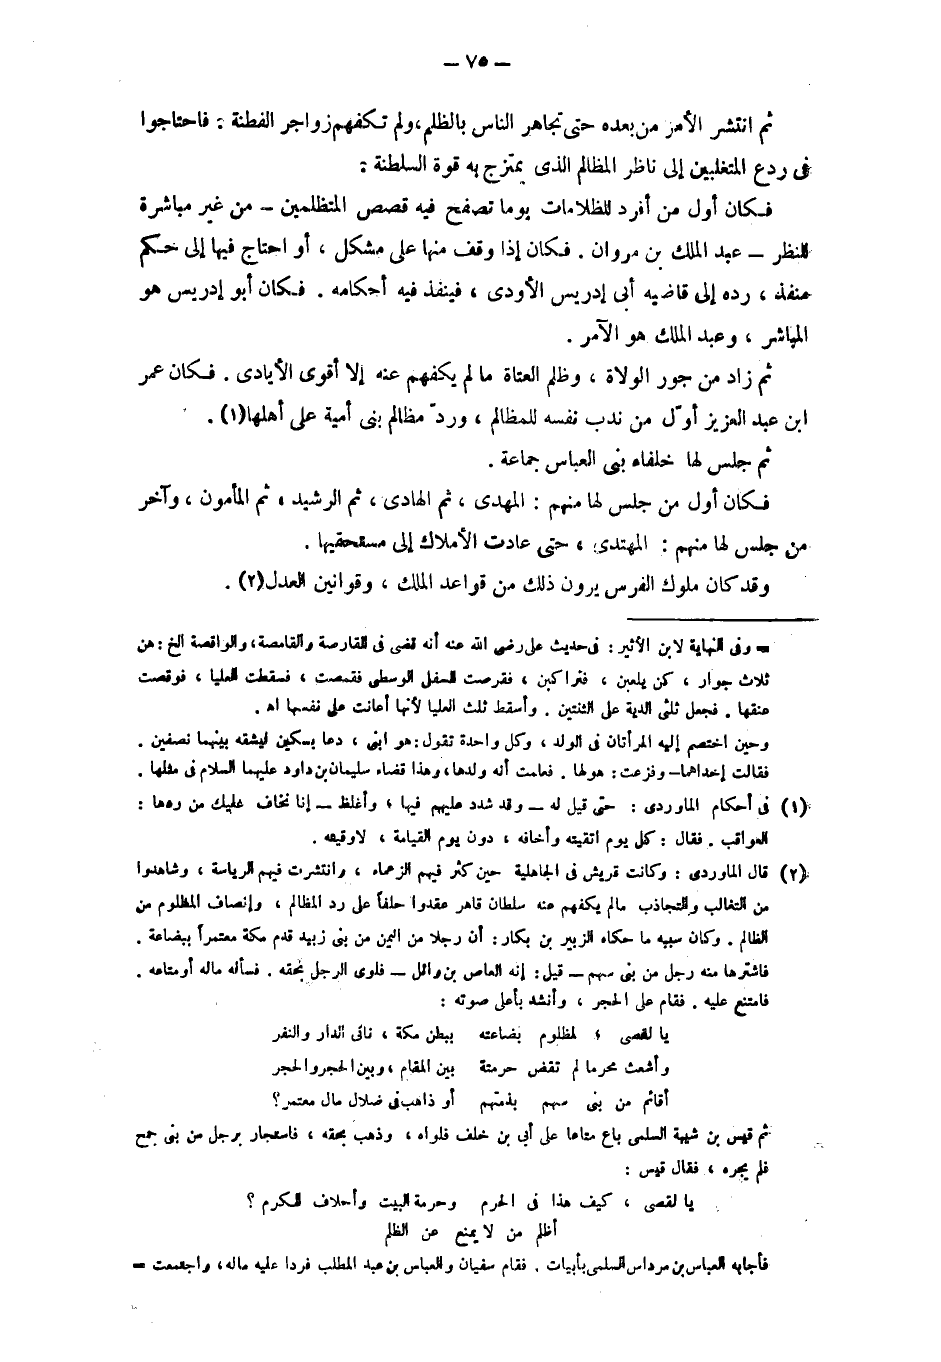 — ٧٥ —
ثم انتشر الأمر من بعده حتى تجاهر الناس بالظلم، ولم تكفهم زواجر الفطنة : فاحتاجوا
فى ردع المتغلبين إلى ناظر المظالم الذى يمتزج به قوة السلطنة :
فكان أول من أفرد للظلامات يوما تصفح فيه قصص المتظلمين – من غير مباشرة
للنظر – عبد الملك بن مروان . فكان إذا وقف منها على مشكل ، أو احتاج فيها إلى حكم
منفذ ، رده إلى قاضيه أبى إدريس الأودى ، فينفذ فيه أحكامه . فكان أبو إدريس هو
المباشر ، وعبد الملك هو الآمر .
ثم زاد من جور الولاة ، وظلم العتاة ما لم يكفهم عنه إلا أقوى الأيادى . فكان عمر
ابن عبد العزيز أوّل من ندب نفسه للمظالم ، وردّ مظالم بنى أمية على أهلها(١) .
ثم جلس لها خلفاء بنى العباس جماعة .
فكان أول من جلس لها منهم : المهدى ، ثم الهادى ، ثم الرشيد ، ثم المأمون ، وآخر
من جلس لها منهم : المهتدى ، حتى عادت الأملاك إلى مستحقيها .
وقد كان ملوك الفرس يرون ذلك من قواعد الملك ، وقوانين العدل(٢) .
= وفى النهاية لابن الأثير : فى حديث على رضى الله عنه أنه قضى فى القارصة والقامصة، والواقصة الخ : هن
ثلاث جوار ، كن يلعبن ، فتراكبن ، فقرصت السفلى الوسطى فقمصت ، فسقطت العليا ، فوقصت
عنقها . فجعل ثلثى الدية على الثنتين . وأسقط ثلث العليا لأنها أعانت على نفسها اه .
وحين اختصم إليه المرأتان فى الولد ، وكل واحدة تقول : هو ابنى ، دعا بسكين ليشقه بينهما نصفين .
فقالت إحداهما – وفزعت : هو لها . فعلمت أنه ولدها، وهذا قضاء سليمان بن داود عليهما السلام فى مثلها .
(١) فى أحكام الماوردى : حتى قيل له – وقد شدد عليهم فيها ، وأغلظ – إنا نخاف عليك من ردها :
العواقب . فقال : كل يوم اتقيته وأخافه ، دون يوم القيامة ، لا وقيته .
(٢) قال الماوردى : وكانت قريش فى الجاهلية حين كثر فيهم الزعماء ، وانتشرت فيهم الرياسة ، وشاهدوا
من التغالب والتجاذب مالم يكفهم عنه سلطان قاهر عقدوا حلفاً على رد المظالم ، وإنصاف المظلوم من
الظالم . وكان سببه ما حكاه الزبير بن بكار : أن رجلا من اليمن من بنى زبيد قدم مكة معتمراً ببضاعة .
فاشترها منه رجل من بنى سهم – قيل : إنه العاص بن وائل – فلوى الرجل بحقه . فسأله ماله أو متاعه .
فامتنع عليه . فقام على الحجر ، وأنشد بأعلى صوته :
يا لقصى ؛ لمظلوم بضاعته ببطن مكة ، نائى الدار والنفر
وأشعث محرما لم تقض حرمتة بين المقام ، وبين الحجر والحجر
أقائم من بنى سهم بذمتهم أو ذاهب فى ضلال مال معتمر؟
ثم قيس بن شيبة السلمى باع متاعا على أبى بن خلف فلواه ، وذهب بحقه ، فاستجار برجل من بنى جمح
فلم يجره ، فقال قيس :
يا لقصى ، كيف هذا فى الحرم وحرمة البيت وأحلاف الكرم ؟
أظلم من لا يمنع عن الظلم
فأجابه العباس بن مرداس السلمى بأبيات . فقام سفيان والعباس بن عبد المطلب فردا عليه ماله، واجتمعت =